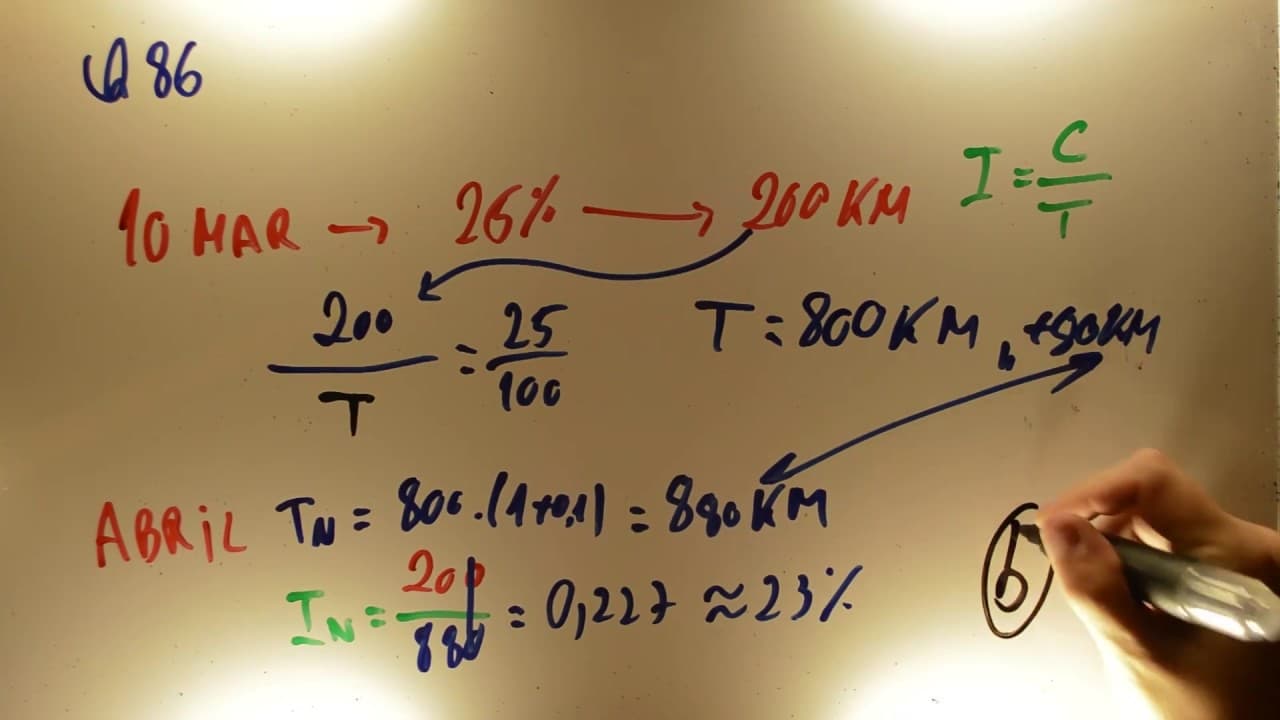 Q 86
10 MAR → 26% → 200 KM
I = C/T
200/T = 25/100
T = 800 KM, +80 KM
ABRIL TN = 800.(1+0,1) = 880 KM
IN = 200/880 = 0,227 ≈ 23%
b